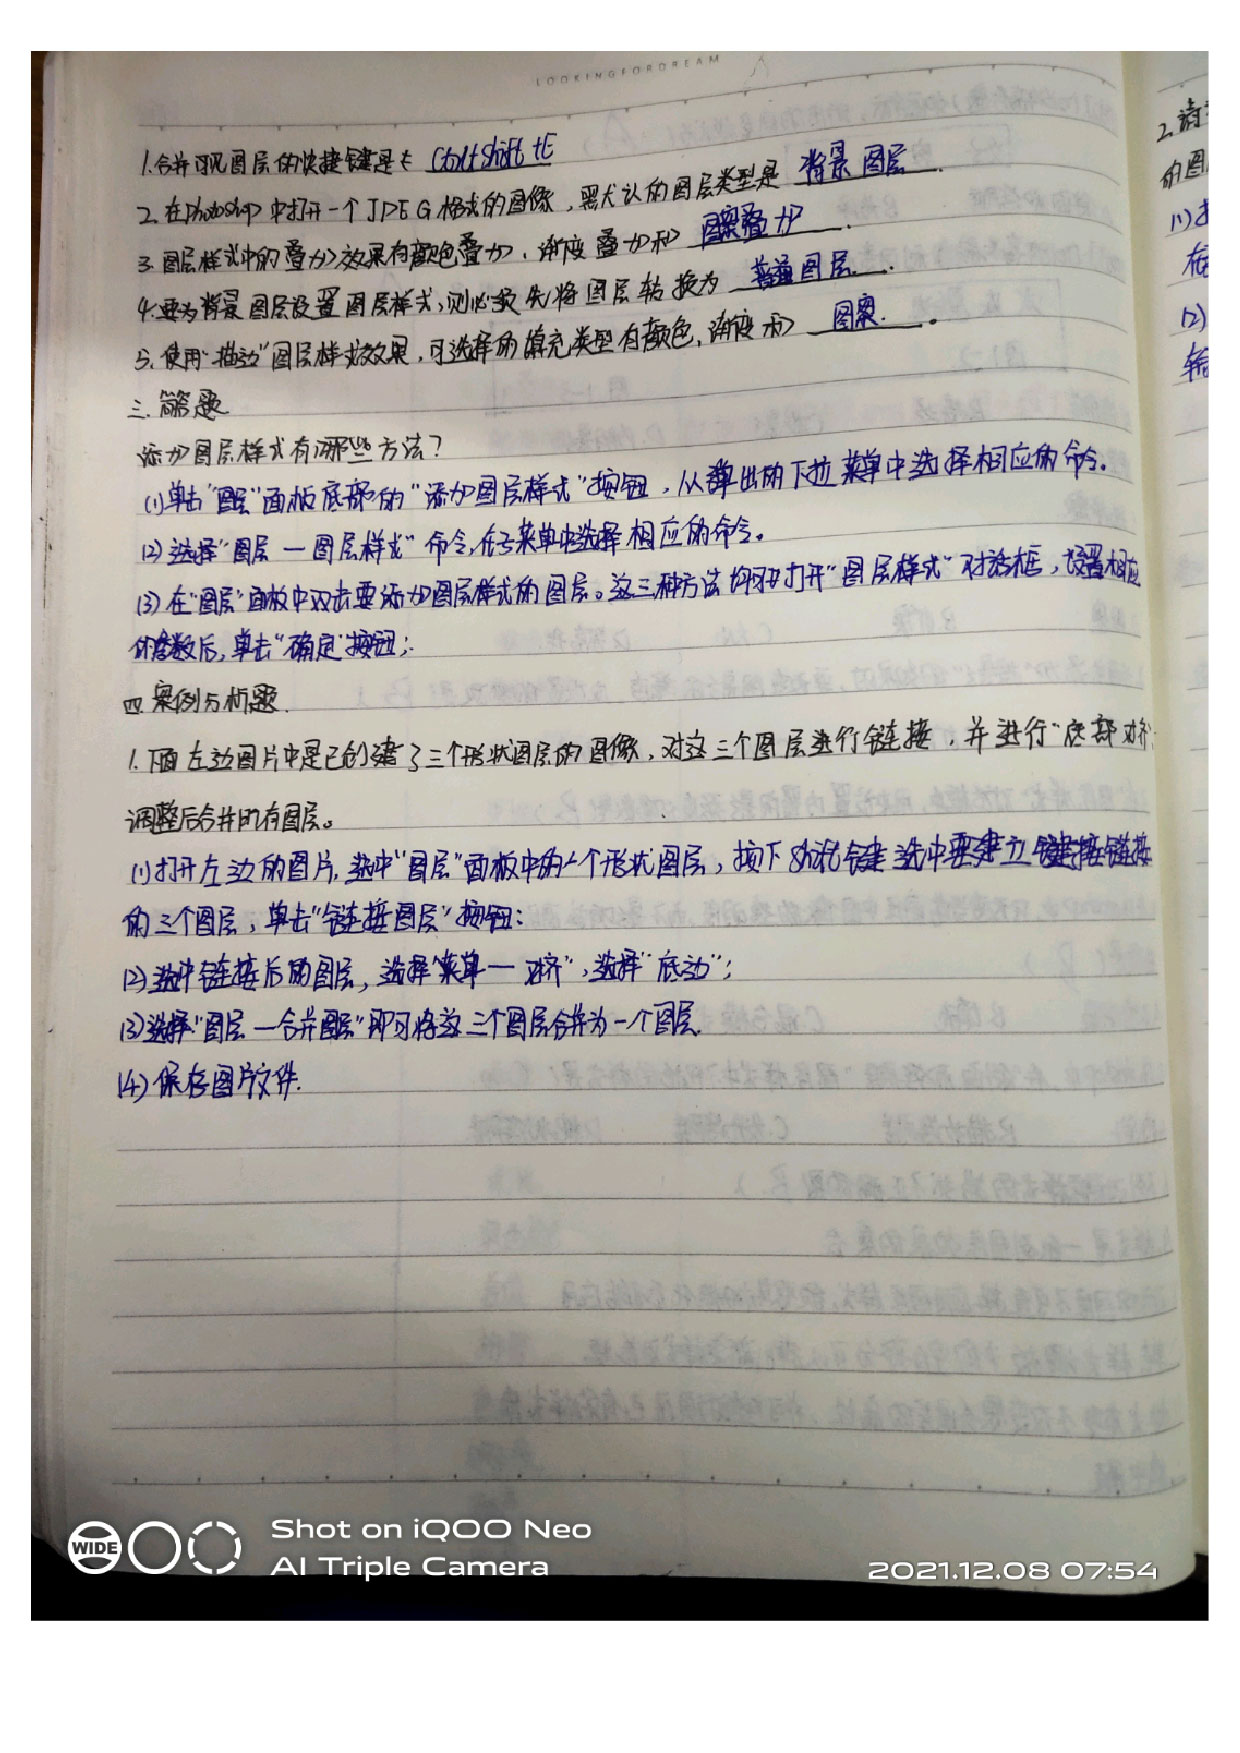 LOOKINGFORDREAM
1.合并可见图层的快捷键是 Ctrl+Shift+E
2.在Photoshop中打开一个JPEG格式的图像，默认的图层类型是 背景图层.
3.图层样式中的叠加效果有颜色叠加、渐变叠加和 图案叠加.
4.要为背景图层设置图层样式,则必须先将图层转换为 普通图层.
5.使用"描边"图层样式效果,可选择的填充类型有颜色、渐变和 图案.。
三.简答题
添加图层样式有哪些方法?
(1)单击"图层"面板底部的"添加图层样式"按钮,从弹出的下拉菜单中选择相应的命令.
(2)选择"图层—图层样式"命令,在子菜单中选择相应的命令。
(3)在"图层"面板中双击要添加图层样式的图层。这三种方法均可打开"图层样式"对话框,设置相应
的参数后,单击"确定"按钮;
四.案例分析题.
1.下面左边图片中是已创建了三个形状图层的图像,对这三个图层进行链接,并进行"底部对齐
调整后合并所有图层。
(1)打开左边的图片,选中"图层"面板中的一个形状图层,按下 键选中要建立链接
的三个图层,单击"链接图层"按钮:
(2)选中链接后的图层,选择"菜单—对齐",选择"底边";
(3)选择"图层—合并图层"即可将这三个图层合并为一个图层.
(4)保存图片文件.
2.请
的图
(1)打
在
(2)
输
WIDE
Shot on iQOO Neo
AI Triple Camera
2021.12.08 07:54